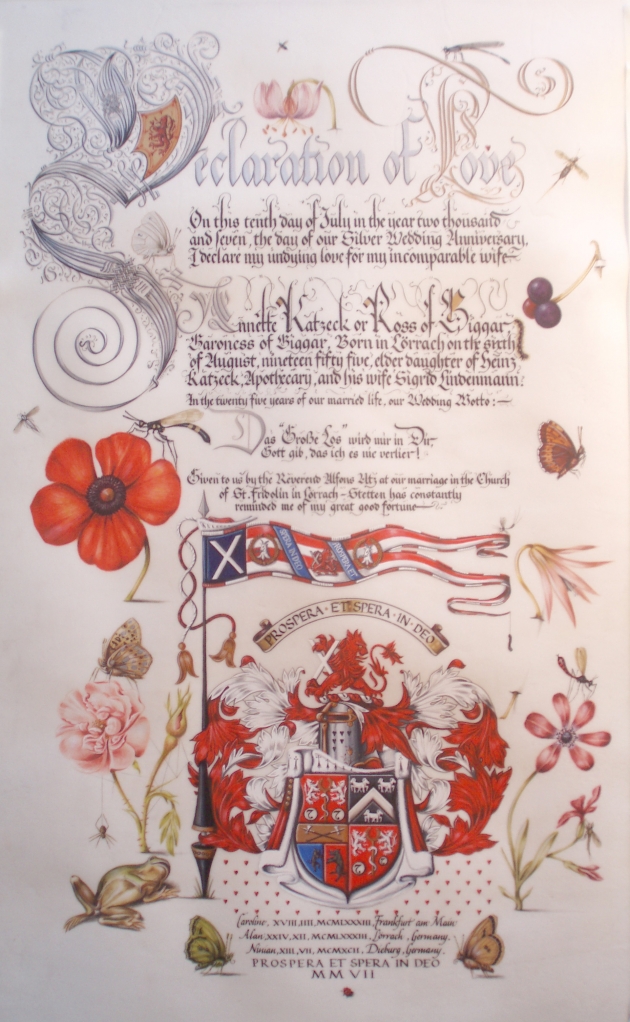 Declaration of Love
On this tenth day of July in the year two thousand
and seven, the day of our Silver Wedding Anniversary,
I declare my undying love for my incomparable wife
Annette Katzeck or Ross of Biggar
Baroness of Biggar, Born in Lörrach on the sixth
of August, nineteen fifty five, elder daughter of Heinz
Katzeck, Apothecary, and his wife Sigrid Lindenmann.
In the twenty five years of our married life, our Wedding Motto:—
Das "Große Los" wird mir in Dir,
Gott gib, das ich es nie verlier!
Given to us by the Reverend Alfons Utz at our marriage in the Church
of St. Fridolin in Lörrach – Stetten has constantly
reminded me of my great good fortune—
PROSPERA · ET · SPERA · IN · DEO
Caroline, XVIII, IIII, MCMLXXXIII, Frankfurt am Main
Alan, XXIV, XII, MCMLXXXIII, Lörrach, Germany.
Ninian, XIII, VII, MCMXCII, Dieburg, Germany.
PROSPERA ET SPERA IN DEO
MMVII